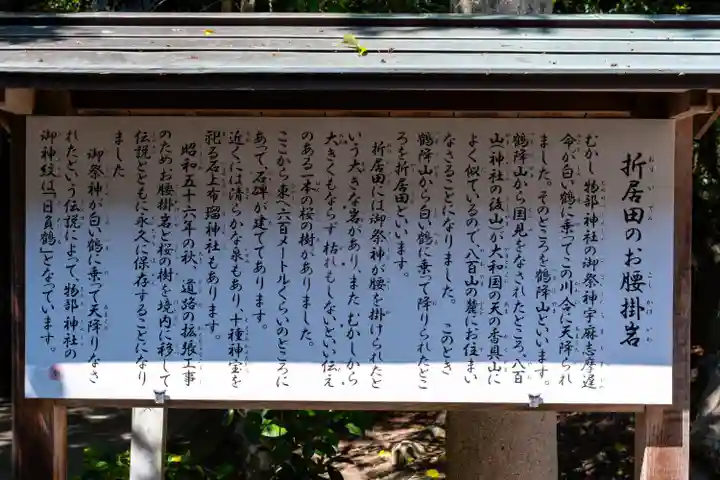 折居田のお腰掛岩
むかし物部神社の御祭神宇麻志摩遅
命が白い鶴に乗ってこの川合に天降られ
ました。そのところを鶴降山といいます。
鶴降山から国見をなされたところ、八百
山(神社の後山)が大和国の天の香具山に
よく似ているので、八百山の麓にお住まい
なさることになりました。このとき
鶴降山から白い鶴に乗って降りられたとこ
ろを折居田といいます。
折居田には御祭神が腰を掛けられたと
いう大きな岩があり、またむかしから
大きくもならず枯れもしないという伝え
のある一本の桜の樹がありました。
ここから東へ六百メートルくらいのところに
あって、石碑が建ててあります。
近くには清らかな泉もあり、十種神宝を
祀る石上布瑠神社もあります。
昭和五十六年の秋、道路の拡張工事
のためお腰掛岩と桜の樹を境内に移して
伝説とともに永久に保存することになり
ました
御祭神が白い鶴に乗って天降りなさ
れたという伝説によって、物部神社の
御神紋は「日負鶴」となっています。